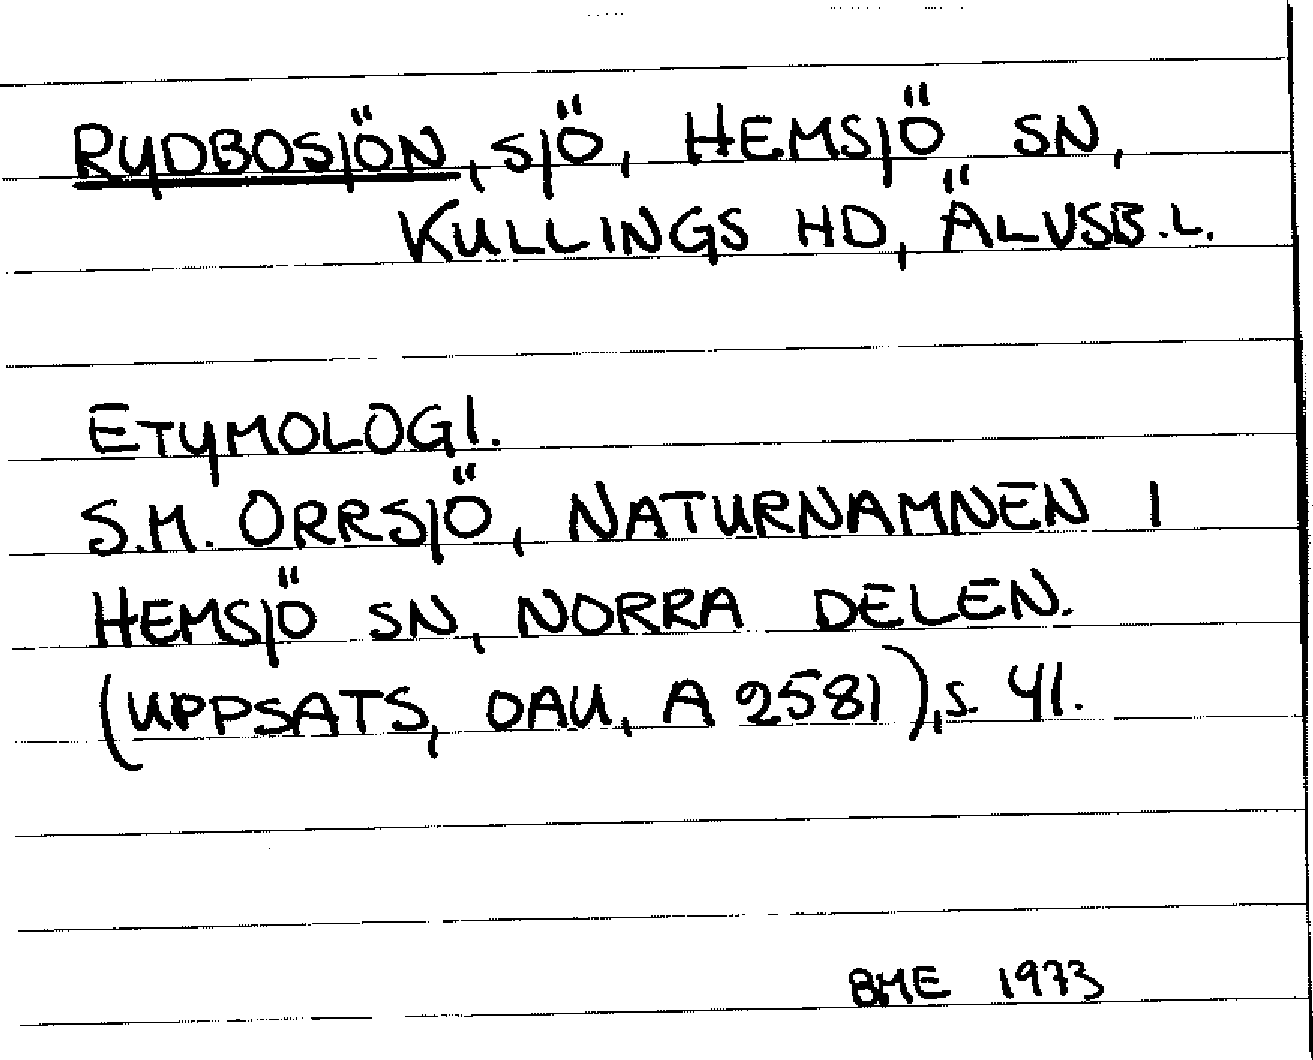 RYDBOSJÖN, SJÖ, HEMSJÖ SN,
KULLINGS HD, ÄLVSB.L.
ETYMOLOGI.
S.M. ORRSJÖ, NATURNAMNEN I
HEMSJÖ SN, NORRA DELEN.
(UPPSATS, OAU, A 2581), s. 41.
BME 1973